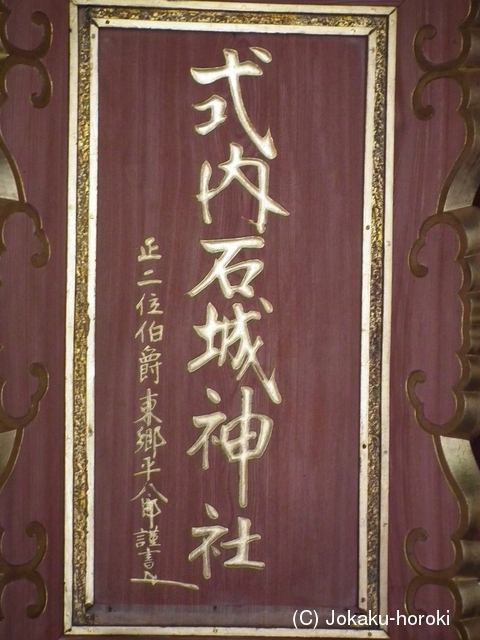 式内石城神社
正二位伯爵東郷平八郎謹書
(C) Jokaku-horoki